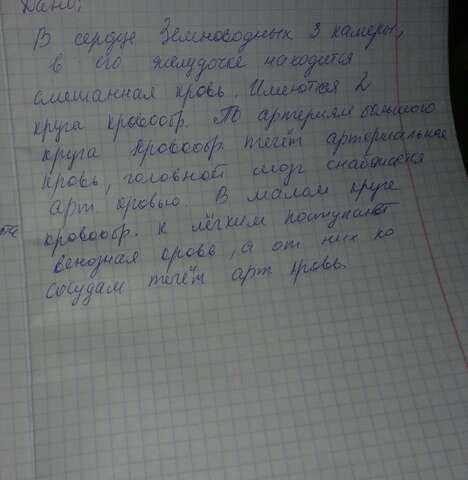 Дано:
В сердце Земноводных 3 камеры,
в его желудочке находится
смешанная кровь. Имеются 2
круга кровообр. По артериям большого
круга кровообр. течёт артериальная
кровь, головной мозг снабжается
арт кровью. В малом круге
кровообр. к лёгким поступает
венозная кровь, а от них по
сосудам течёт арт кровь.